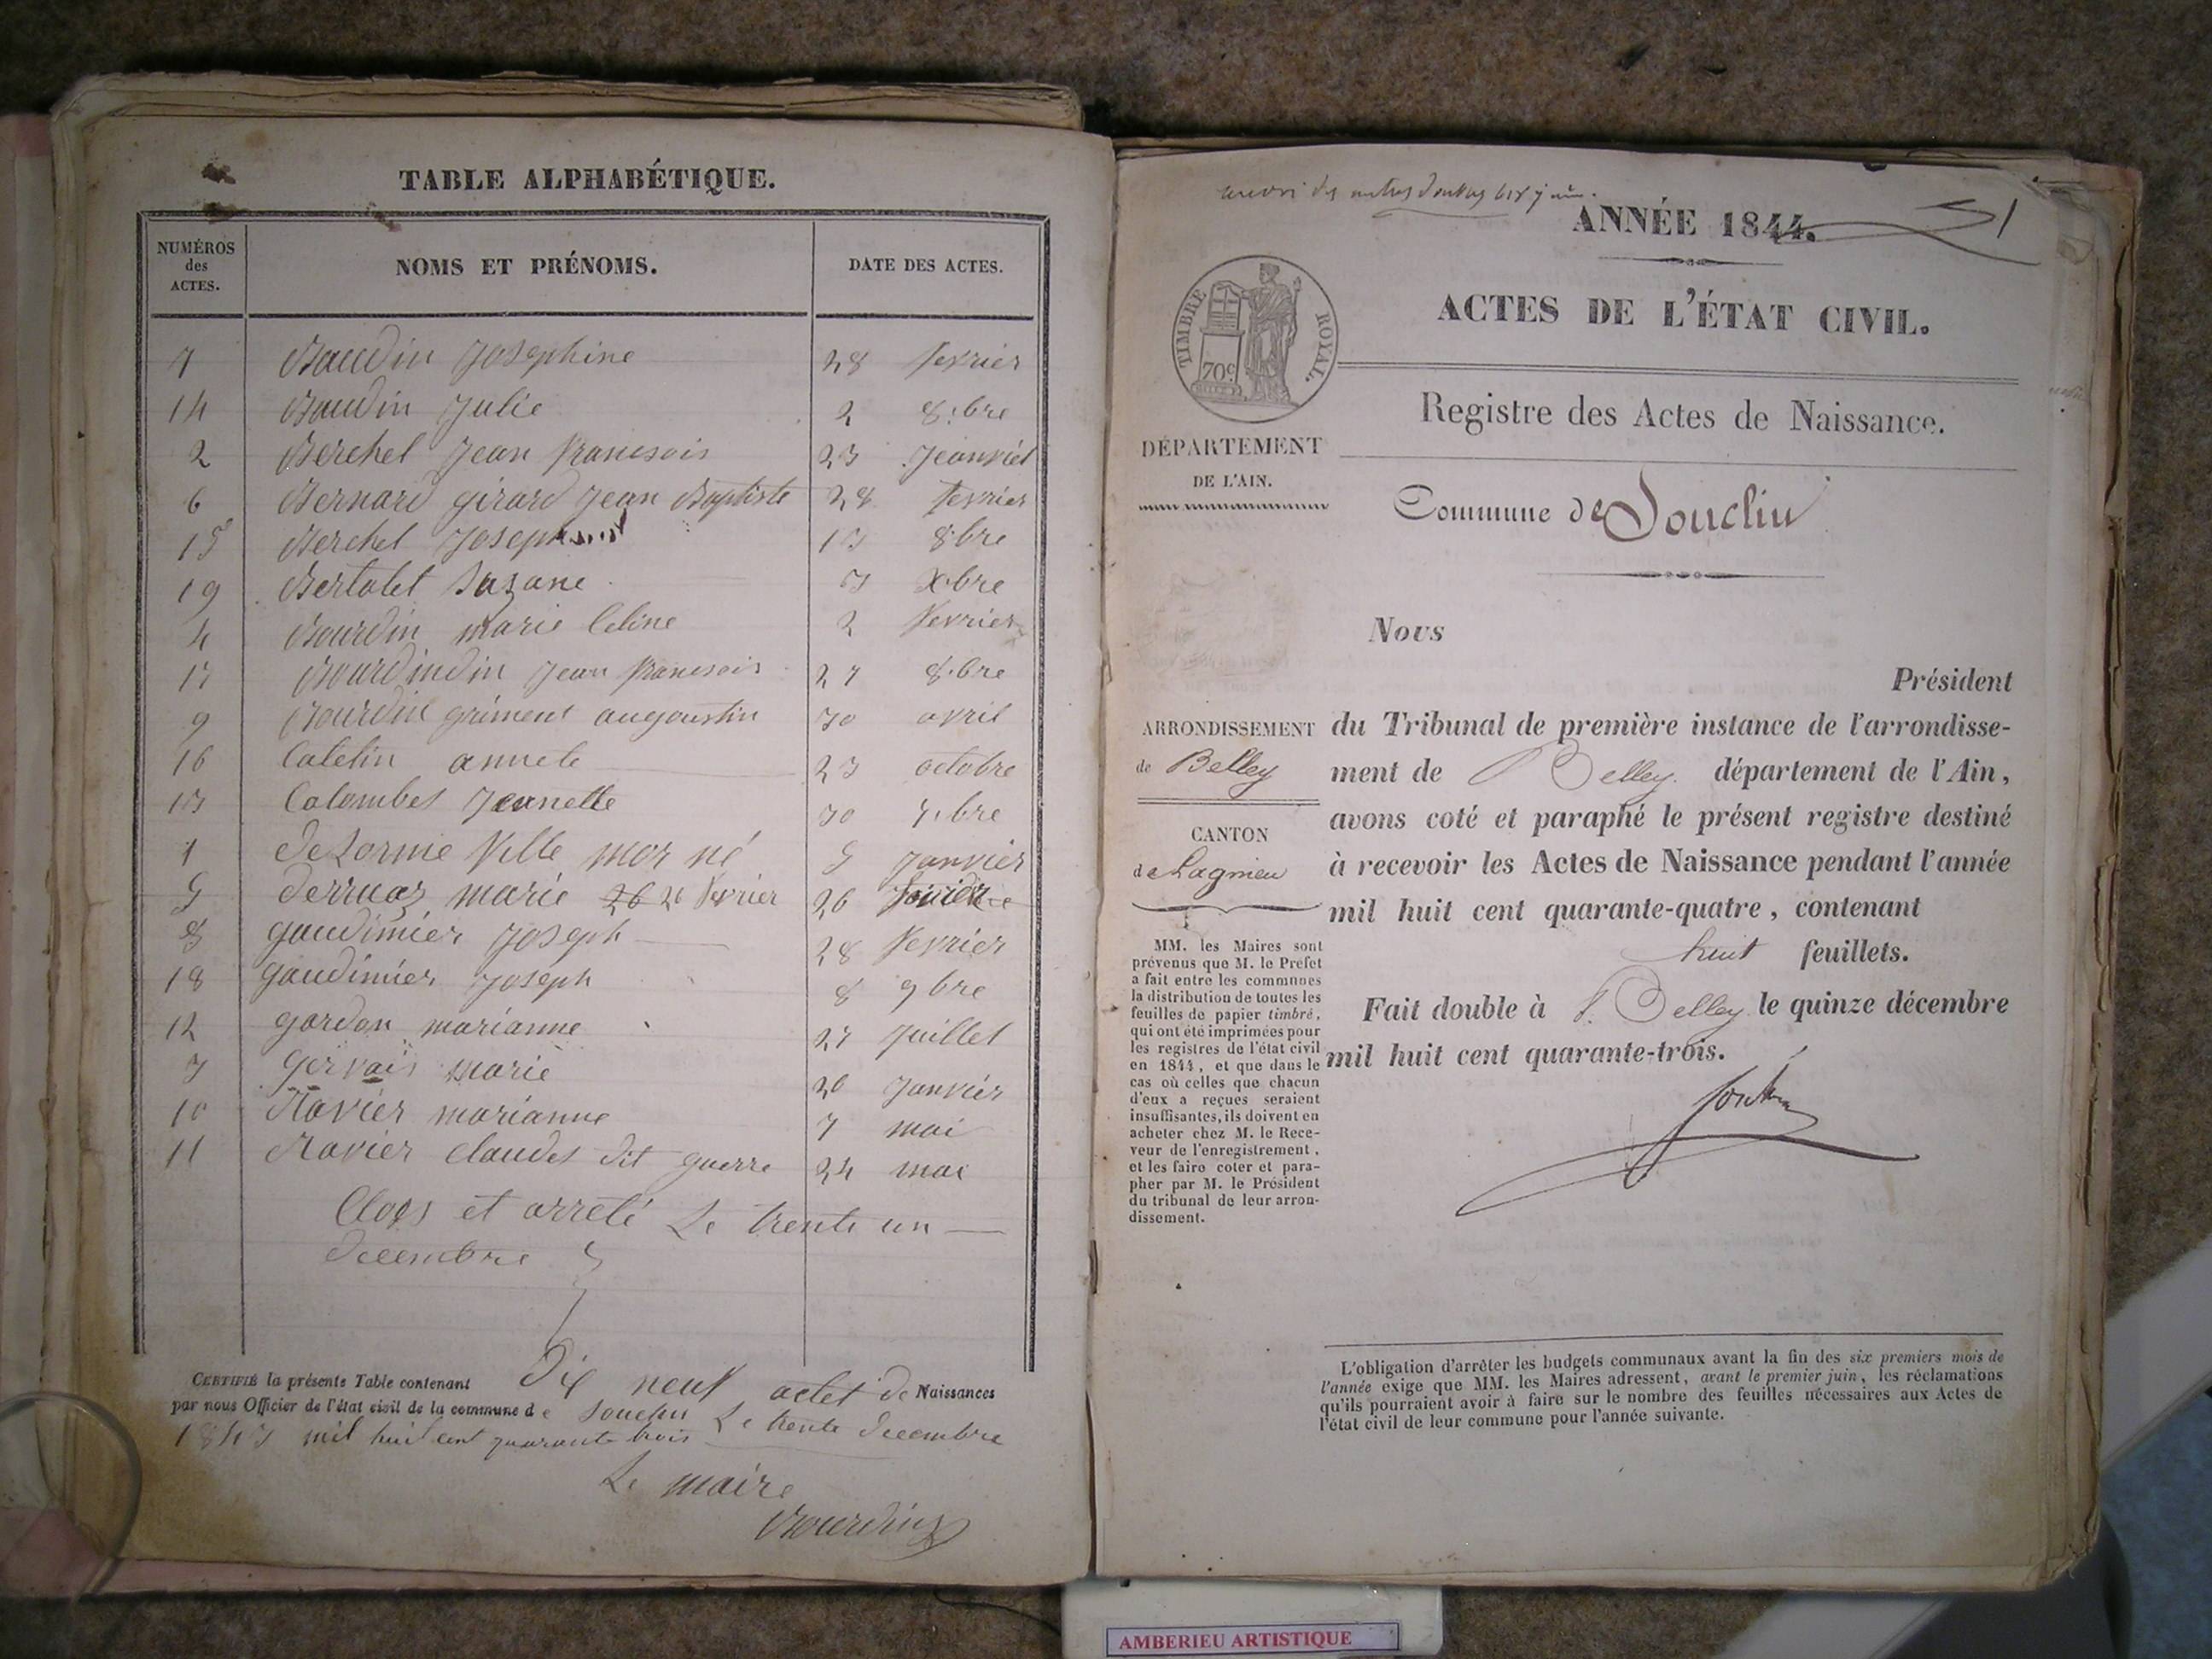 TABLE ALPHABÉTIQUE.
NUMÉROS des ACTES. NOMS ET PRÉNOMS. DATE DES ACTES.
7 Baudin Josephine 28 fevrier
14 Baudin Julie 2 8.bre
2 Berchet Jean francsois 23 Jeanviet
6 Bernard girard Jean Baptiste 28 fevrier
15 Berchet Joseph 13 8bre
19 Bertolet Suzane 3 Xbre
4 Bourdin marie Celine 2 fevrier
17 Bourdindin Jean francsois 27 8.bre
9 Bourdin griment augoustin 30 avril
16 Catelin annete 23 octobre
13 Colombet Jeanette 30 7.bre
1 deLorme Ville mor né 5 Janvier
5 derruaz marie 26 26 fevrier 26
8 gaudimier Joseph 28 fevrier
18 gaudimier Joseph 8 9bre
12 gordon marianne 27 Juillet
3 Gervais marie 20 Janvier
10 Ravier marianne 7 mai
11 Ravier claudet dit guerre 24 mai
Clops et arreté Le trente un
decembre
CERTIFIÉ la présente Table contenant Dix neuf actet de Naissances
par nous Officier de l'état civil de la commune de Souclin Le trente decembre
1843 mil huit cent quarante trois
Le maire
Bourdin
ANNÉE 1844.
51
TIMBRE ROYAL.
70c
ACTES DE L'ÉTAT CIVIL.
Registre des Actes de Naissance.
DÉPARTEMENT
DE L'AIN.
Commune de Souclin
Nous
Président
ARRONDISSEMENT
de Belley
CANTON
de Lagnieu
du Tribunal de première instance de l'arrondisse-
ment de Belley. département de l'Ain,
avons coté et paraphé le présent registre destiné
à recevoir les Actes de Naissance pendant l'année
mil huit cent quarante-quatre, contenant
huit feuillets.
Fait double à Belley le quinze décembre
mil huit cent quarante-trois.
MM. les Maires sont
prévenus que M. le Préfet
a fait entre les communes
la distribution de toutes les
feuilles de papier timbré,
qui ont été imprimées pour
les registres de l'état civil
en 1844, et que dans le
cas où celles que chacun
d'eux a reçues seraient
insuffisantes, ils doivent en
acheter chez M. le Rece-
veur de l'enregistrement,
et les faire coter et para-
pher par M. le Président
du tribunal de leur arron-
dissement.
L'obligation d'arrêter les budgets communaux avant la fin des six premiers mois de
l'année exige que MM. les Maires adressent, avant le premier juin, les réclamations
qu'ils pourraient avoir à faire sur le nombre des feuilles nécessaires aux Actes de
l'état civil de leur commune pour l'année suivante.
AMBERIEU ARTISTIQUE